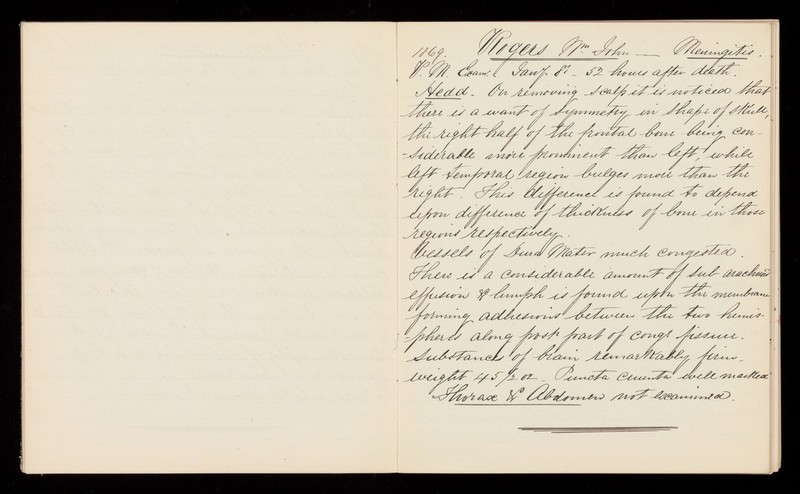 1869. Rogers Wm John — Meningitis.
P.M. Exam. Jany 8th - 52 hours after death.
Head. On removing scalp it is noticed that
there is a want of symmetry in shape of skull,
the right half of the frontal bone being con-
-siderable more prominent than left, while
left temporal region bulges more than the
right. This difference is found to depend
upon difference of thickness of bone in those
regions respectively.
Vessels of Dura Mater much congested.
There is a considerable amount of sub arachnoid
effusion & lymph is found upon the membrane
forming adhesions between the two hemis-
-pheres along post part of longl fissure.
Substance of brain remarkably firm.
weight 45 1/2 oz. Puncta cruenta well marked
Thorax & Abdomen not examined.